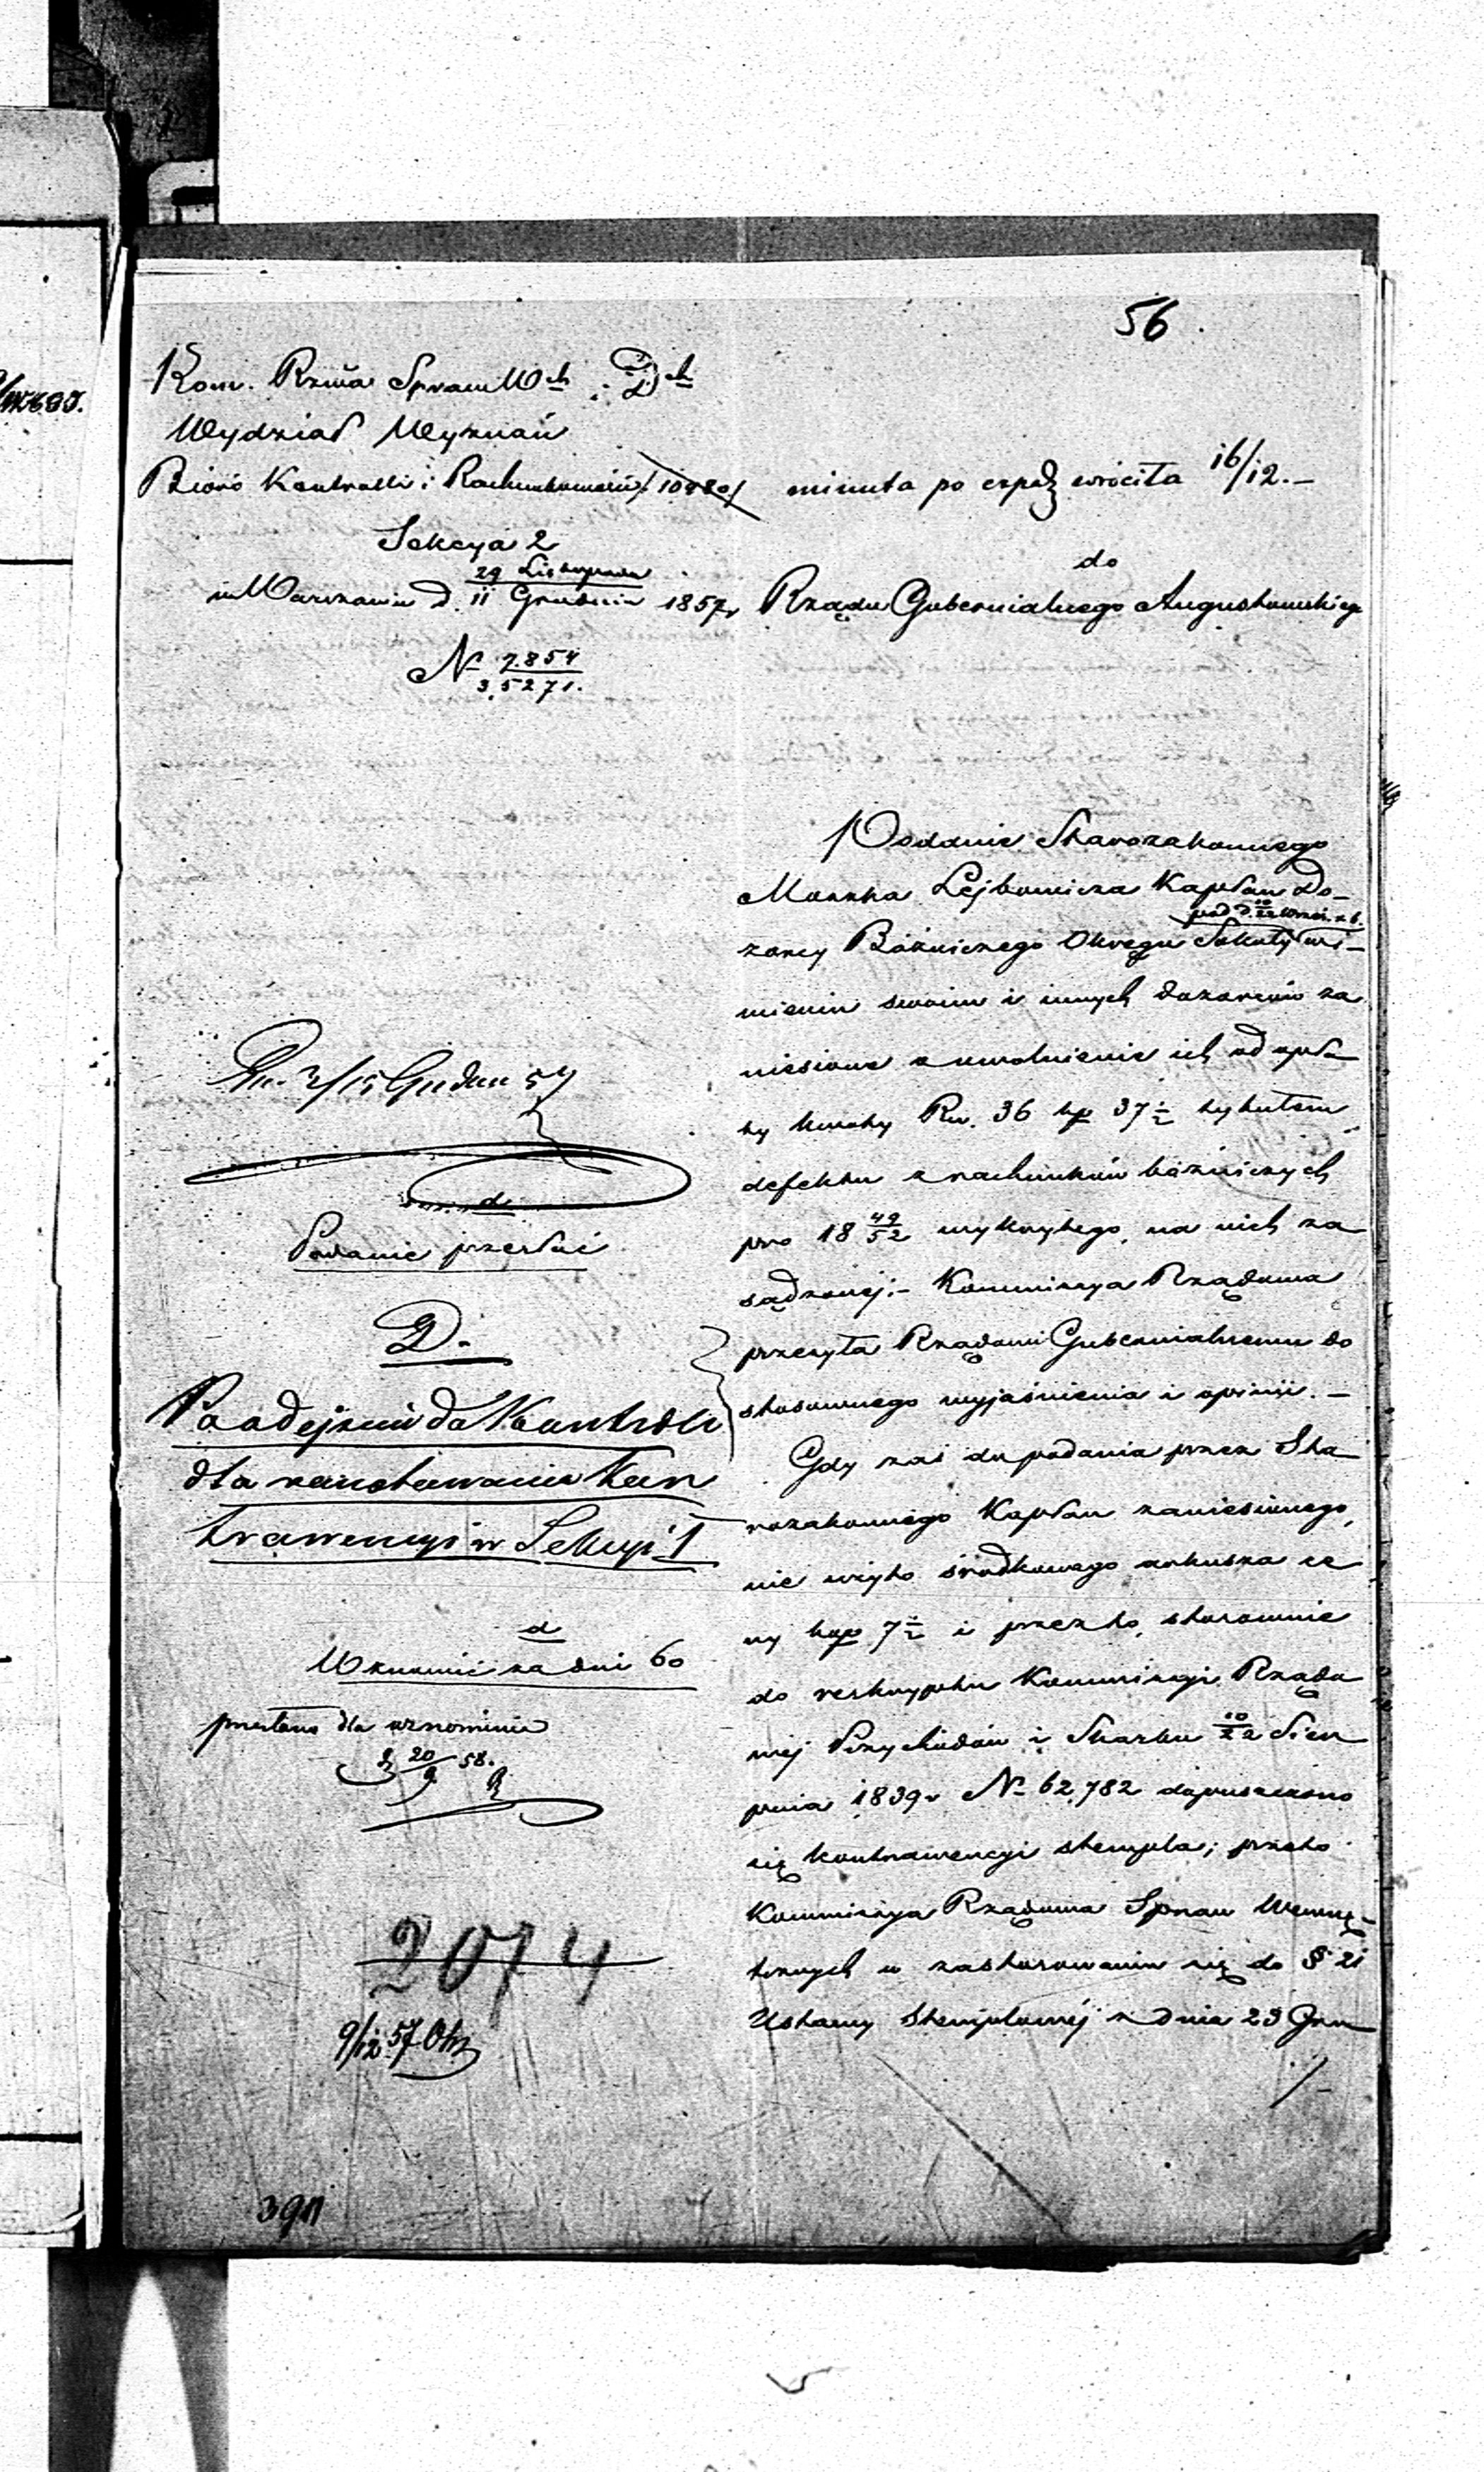 56.
Kom. Rzwa Spraw Wch i Dch
Wydział Wyznań
Bióro Kontrolli i Rachunkowości
minuta po exped wróciła 16/12.-
Sekcya 2
29 Listopada
w Warszawie d. 11 Grudnia 1857r
do
Rządu Gubernialnego Augustowskiego
N 7854
35271.
Poddanie Starozakonnego
Moszka Lejbowicza Kapłan Do-
pod d. 10/22 Wrześ. r. b.
zorcy Bóżniczego Okręgu Sokoły w i-
mieniu swoim i innych dozorców za
niesione o uwolnienie ich od opła
ty kwoty Rs. 36 kp 37 1/2 tytułem
defektu z rachunków bóżniczych
pro 18 49/52 wykrytego, na nich za
sądzonej:- Kommissya Rządowa
przesyła Rządowi Gubernialnemu do
stosownego wyjaśnienia i opinii.-
Gdy zaś do podania przez Sta
rozakonnego Kapłan zaniesionego,
nie użyto środkowego arkusza ce
ny kop 7 1/2 i przez to, stosownie
do reskryptu Kommissyi Rządo
wej Przychodów i Skarbu 10/22 Sier
pnia 1839r N 62,782 dopuszczono
się kontrawencyi stempla; przeto
Kommissya Rządowa Spraw Wewnę-
trznych w zastosowaniu się do § 21
Ustawy Stemplowéj z dnia 23 Gru
/-
d
Podanie przesłać
D.
Po odejściu do Kontroli
dla zanotowania Kon
trawencyi w Sekcyi 1
d
Wznowić za dni 60
przesłano dla wznowienia
20/9 58.
2074
9/12 57